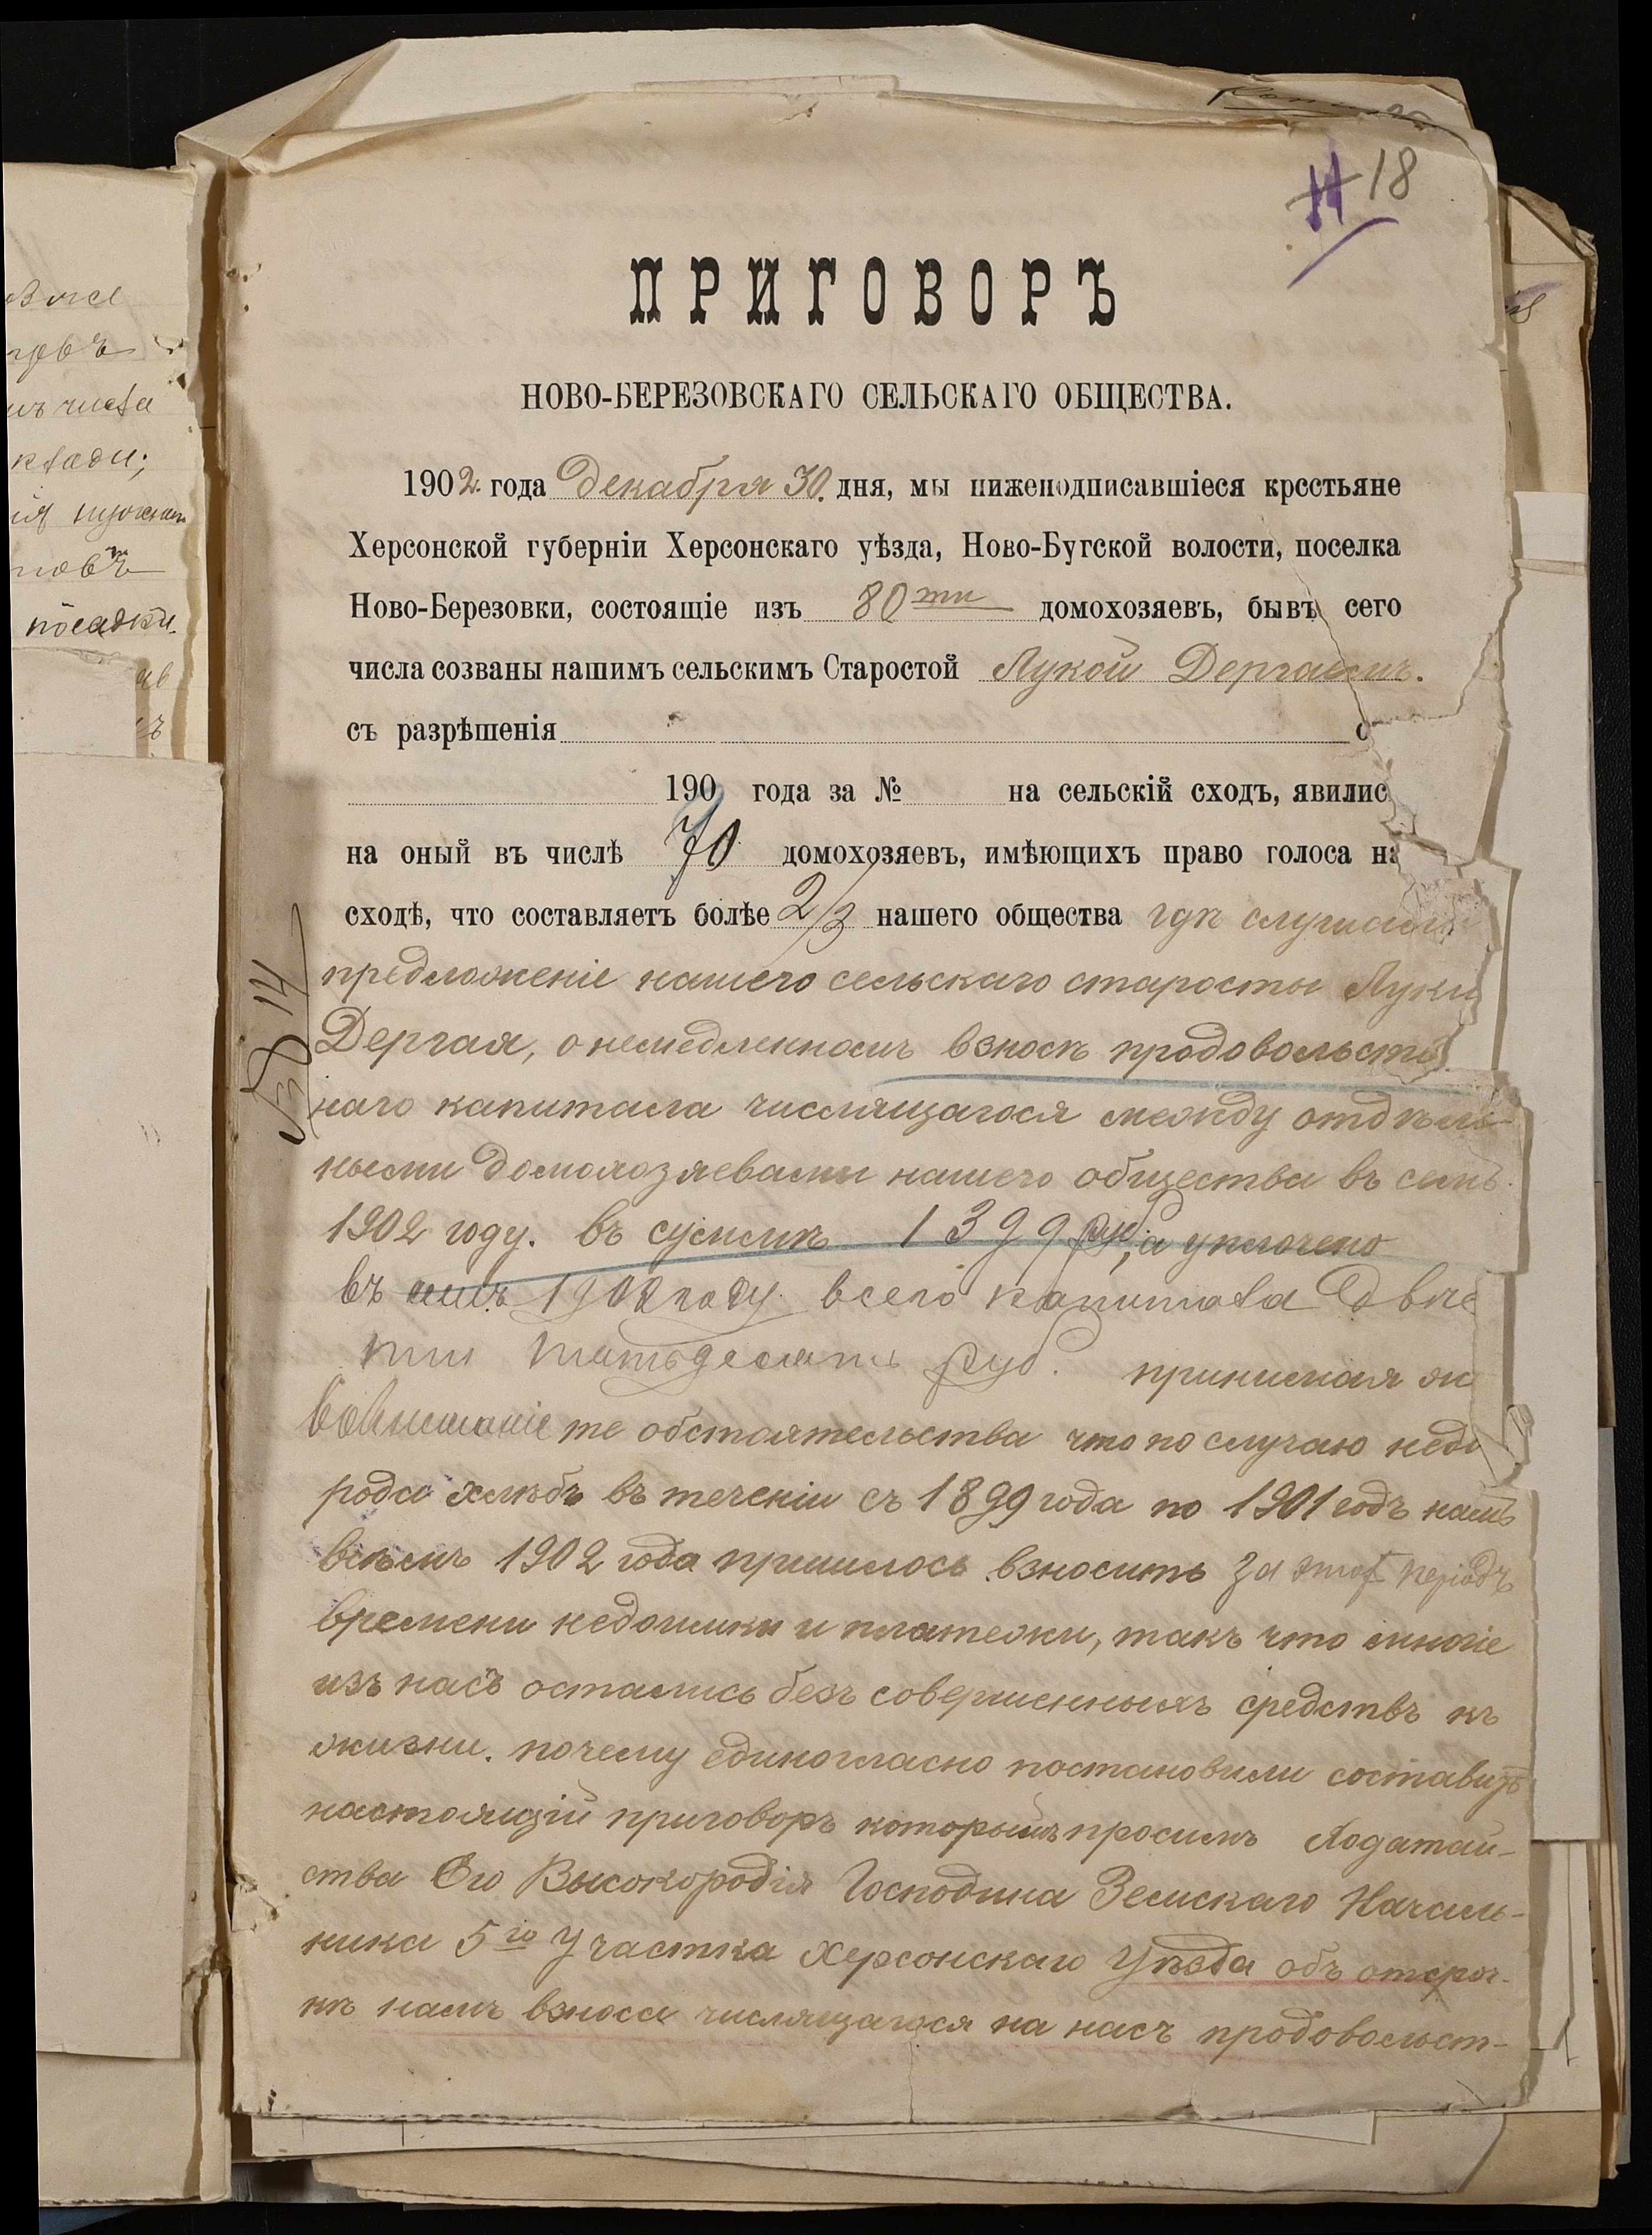 18
ПРИГОВОРЪ
НОВО-БЕРЕЗОВСКАГО СЕЛЬСКАГО ОБЩЕСТВА.
1902 года Декабря 30 дня, мы нижеподписавшіеся крестьяне
Херсонской губерніи Херсонскаго уѣзда, Ново-Бугской волости, поселка
Ново-Березовки, состоящіе изъ 80ти домохозяевъ, бывъ сего
числа созваны нашимъ сельскимъ Старостой Лукой Дергаемъ.
съ разрѣшенія
190 года за № на сельскій сходъ, явилис
на оный въ числѣ 70 домохозяевъ, имѣющихъ право голоса на
сходѣ, что составляетъ болѣе 2/3 нашего общества гдѣ слушали
предложеніе нашего сельскаго старосты Луки
Дергая, о немедленномъ взносѣ продовольств
№ 14
наго капитала числящагося между отдѣль-
ными домохозяевами нашего общества въ семъ
1902 году. въ суммѣ 1399 руб, а уплочено
въ семъ 1902 году. всего капитала Двѣс
ти пятьдесятъ руб. принимая
во вниманіе те обстоятельства что по случаю недо
рода хлѣбъ въ теченіи съ 1899 года по 1901 годъ намъ
всѣмъ 1902 года пришлось взносить за этот періодъ
времени недоимки и платежи, такъ что многіе
изъ насъ остались безъ совершенныхъ средствъ къ
жизни. почему единогласно постановили составить
настоящій приговоръ которымъ просимъ Ходатай-
ства Его Высокородія Господина Земскаго Началь-
ника 5го Участка Херсонскаго Уѣзда объ отсроч-
кѣ намъ взноса числящагося на насъ продовольст-